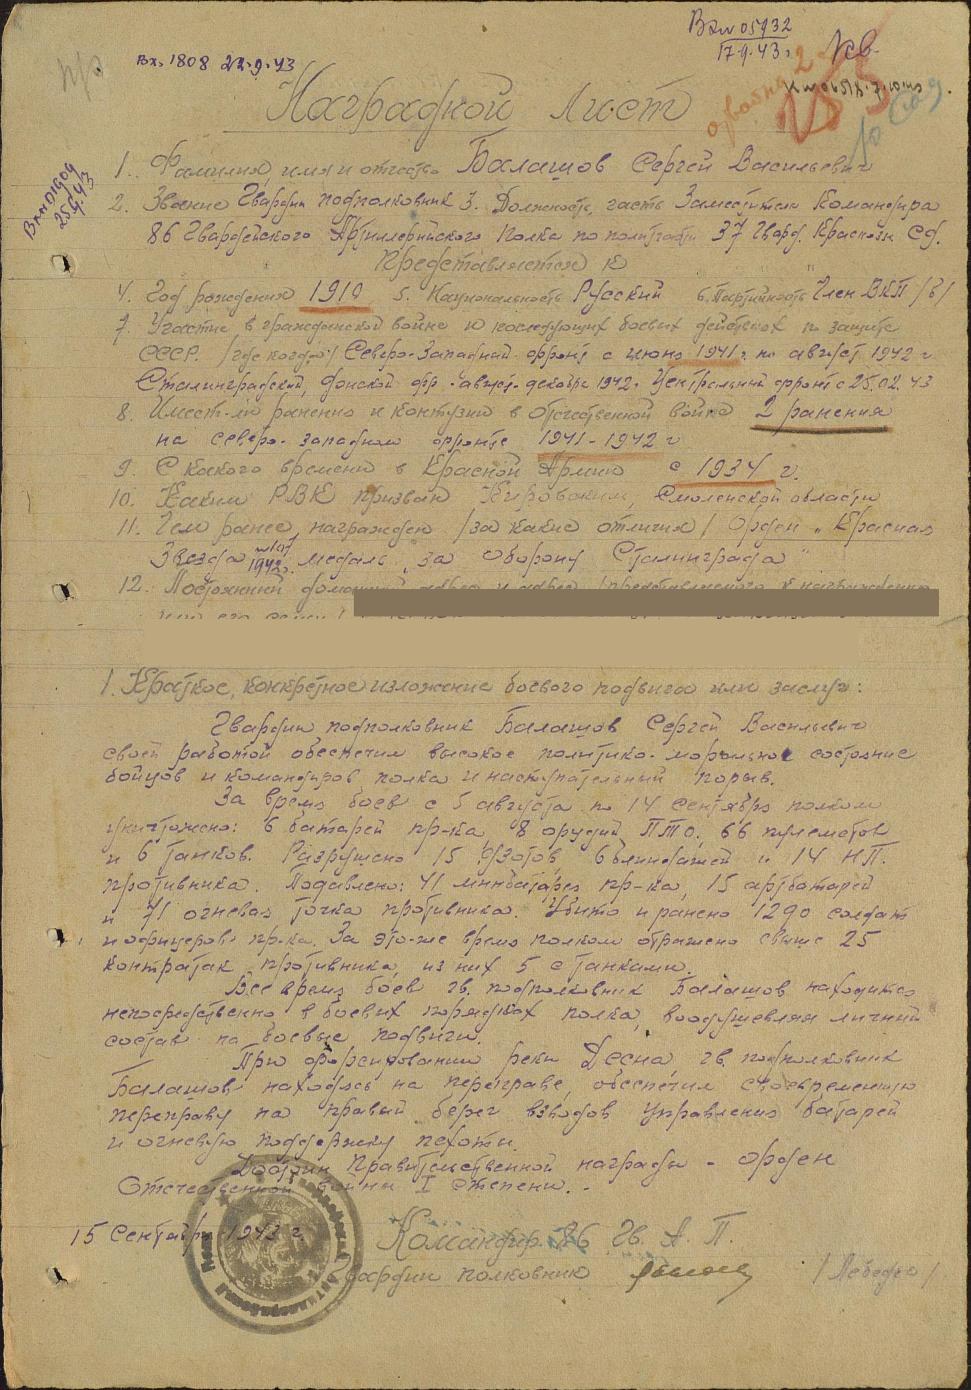 Вх. 1808 22.9.43
17.9.43 г.
25.9.43
Наградной Лист
1. Фамилия, имя и отчество Балашов Сергей Васильевич
2. Звание Гвардии подполковник 3. Должность, часть Заместитель Командира
86 Гвардейского Артиллерийского Полка по политчасти 37 Гвард. Краснозн. СД.
Представляется к
4. Год рождения 1910 5. Национальность Русский 6. Партийность Член ВКП /б/
7. Участие в гражданской войне и последующих боевых действиях по защите
СССР. /где когда/ Северо-Западный фронт с июня 1941 г. по август 1942 г.
Сталинградский, Донской фр. август-декабрь 1942. Центральный фронт с 25.02.43
8. Имеет-ли ранения и контузии в отечественной войне 2 ранения
на северо-западном фронте 1941-1942 г
9. С какого времени в Красной Армии с 1934 г.
10. Каким РВК призван Кировским, Смоленской области
11. Чем ранее награжден /за какие отличия/ Орден „Красная
Звезда 1942г. медаль „За Оборону Сталинграда"
12. Постоянный домашний адрес и адрес представляемого к награждению
или его семьи
1. Краткое, конкретное изложение боевого подвига или заслуг:
Гвардии подполковник Балашов Сергей Васильевич
своей работой обеспечил высокое политико-моральное состояние
бойцов и командиров полка и наступательный порыв.
За время боев с 5 августа по 14 сентября полком
уничтожено: 6 батарей пр-ка, 8 орудий ПТО, 66 пулеметов
и 6 танков. Разрушено 15 дзотов, 6 блиндажей и 14 НП.
противника. Подавлено: 41 минбатарея пр-ка, 15 артбатарей
и 71 огневая точка противника. Убито и ранено 1290 солдат
и офицеров пр-ка. За это-же время полком отражено свыше 25
контратак противника, из них 5 с танками.
Все время боев гв. подполковник Балашов находится
непосредственно в боевых порядках полка, воодушевляя личный
состав на боевые подвиги.
При форсировании реки Десна гв. подполковник
Балашов находясь на переправе, обеспечил своевременную
переправу на правый берег взводов управления батарей
и огневую поддержку пехоты.
Достоин Правительственной награды - орден
Отечественной войны I степени.
15 Сентября 1943 г.
Командир 86 Гв. А. П.
Гвардии полковник